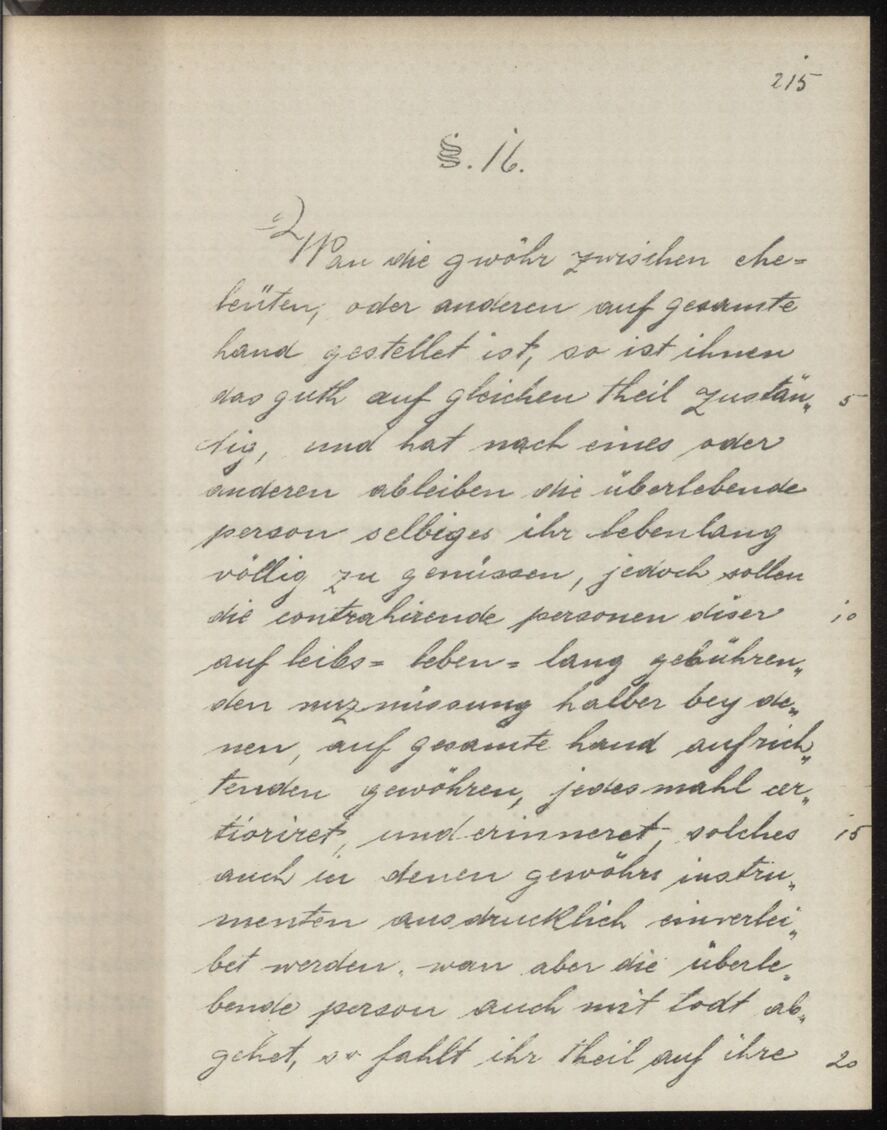 215
§. 16.
Wan die gwöhr zwischen ehe=
leüten, oder anderen auf gesamte
hand gestellet ist, so ist ihnen
das guth auf gleichen theil zustän„ 5
dig, und hat nach eines oder
anderen ableiben die überlebende
person selbiges ihr lebenlang
völlig zu genüssen, jedoch sollen
die contrahirende personen diser 10
auf leibs= leben= lang gebühren„
den nuznüssung halber bey de„
nen, auf gesamte hand aufrich„
tenden gewöhren, jedesmahl cer„
tioriret, und erinneret, solches 15
auch in denen gewöhrs instru„
menten ausdrucklich einverlei„
bet werden. wan aber die überle„
bende person auch mit todt ab„
gehet, so fahlt ihr theil auf ihre 20